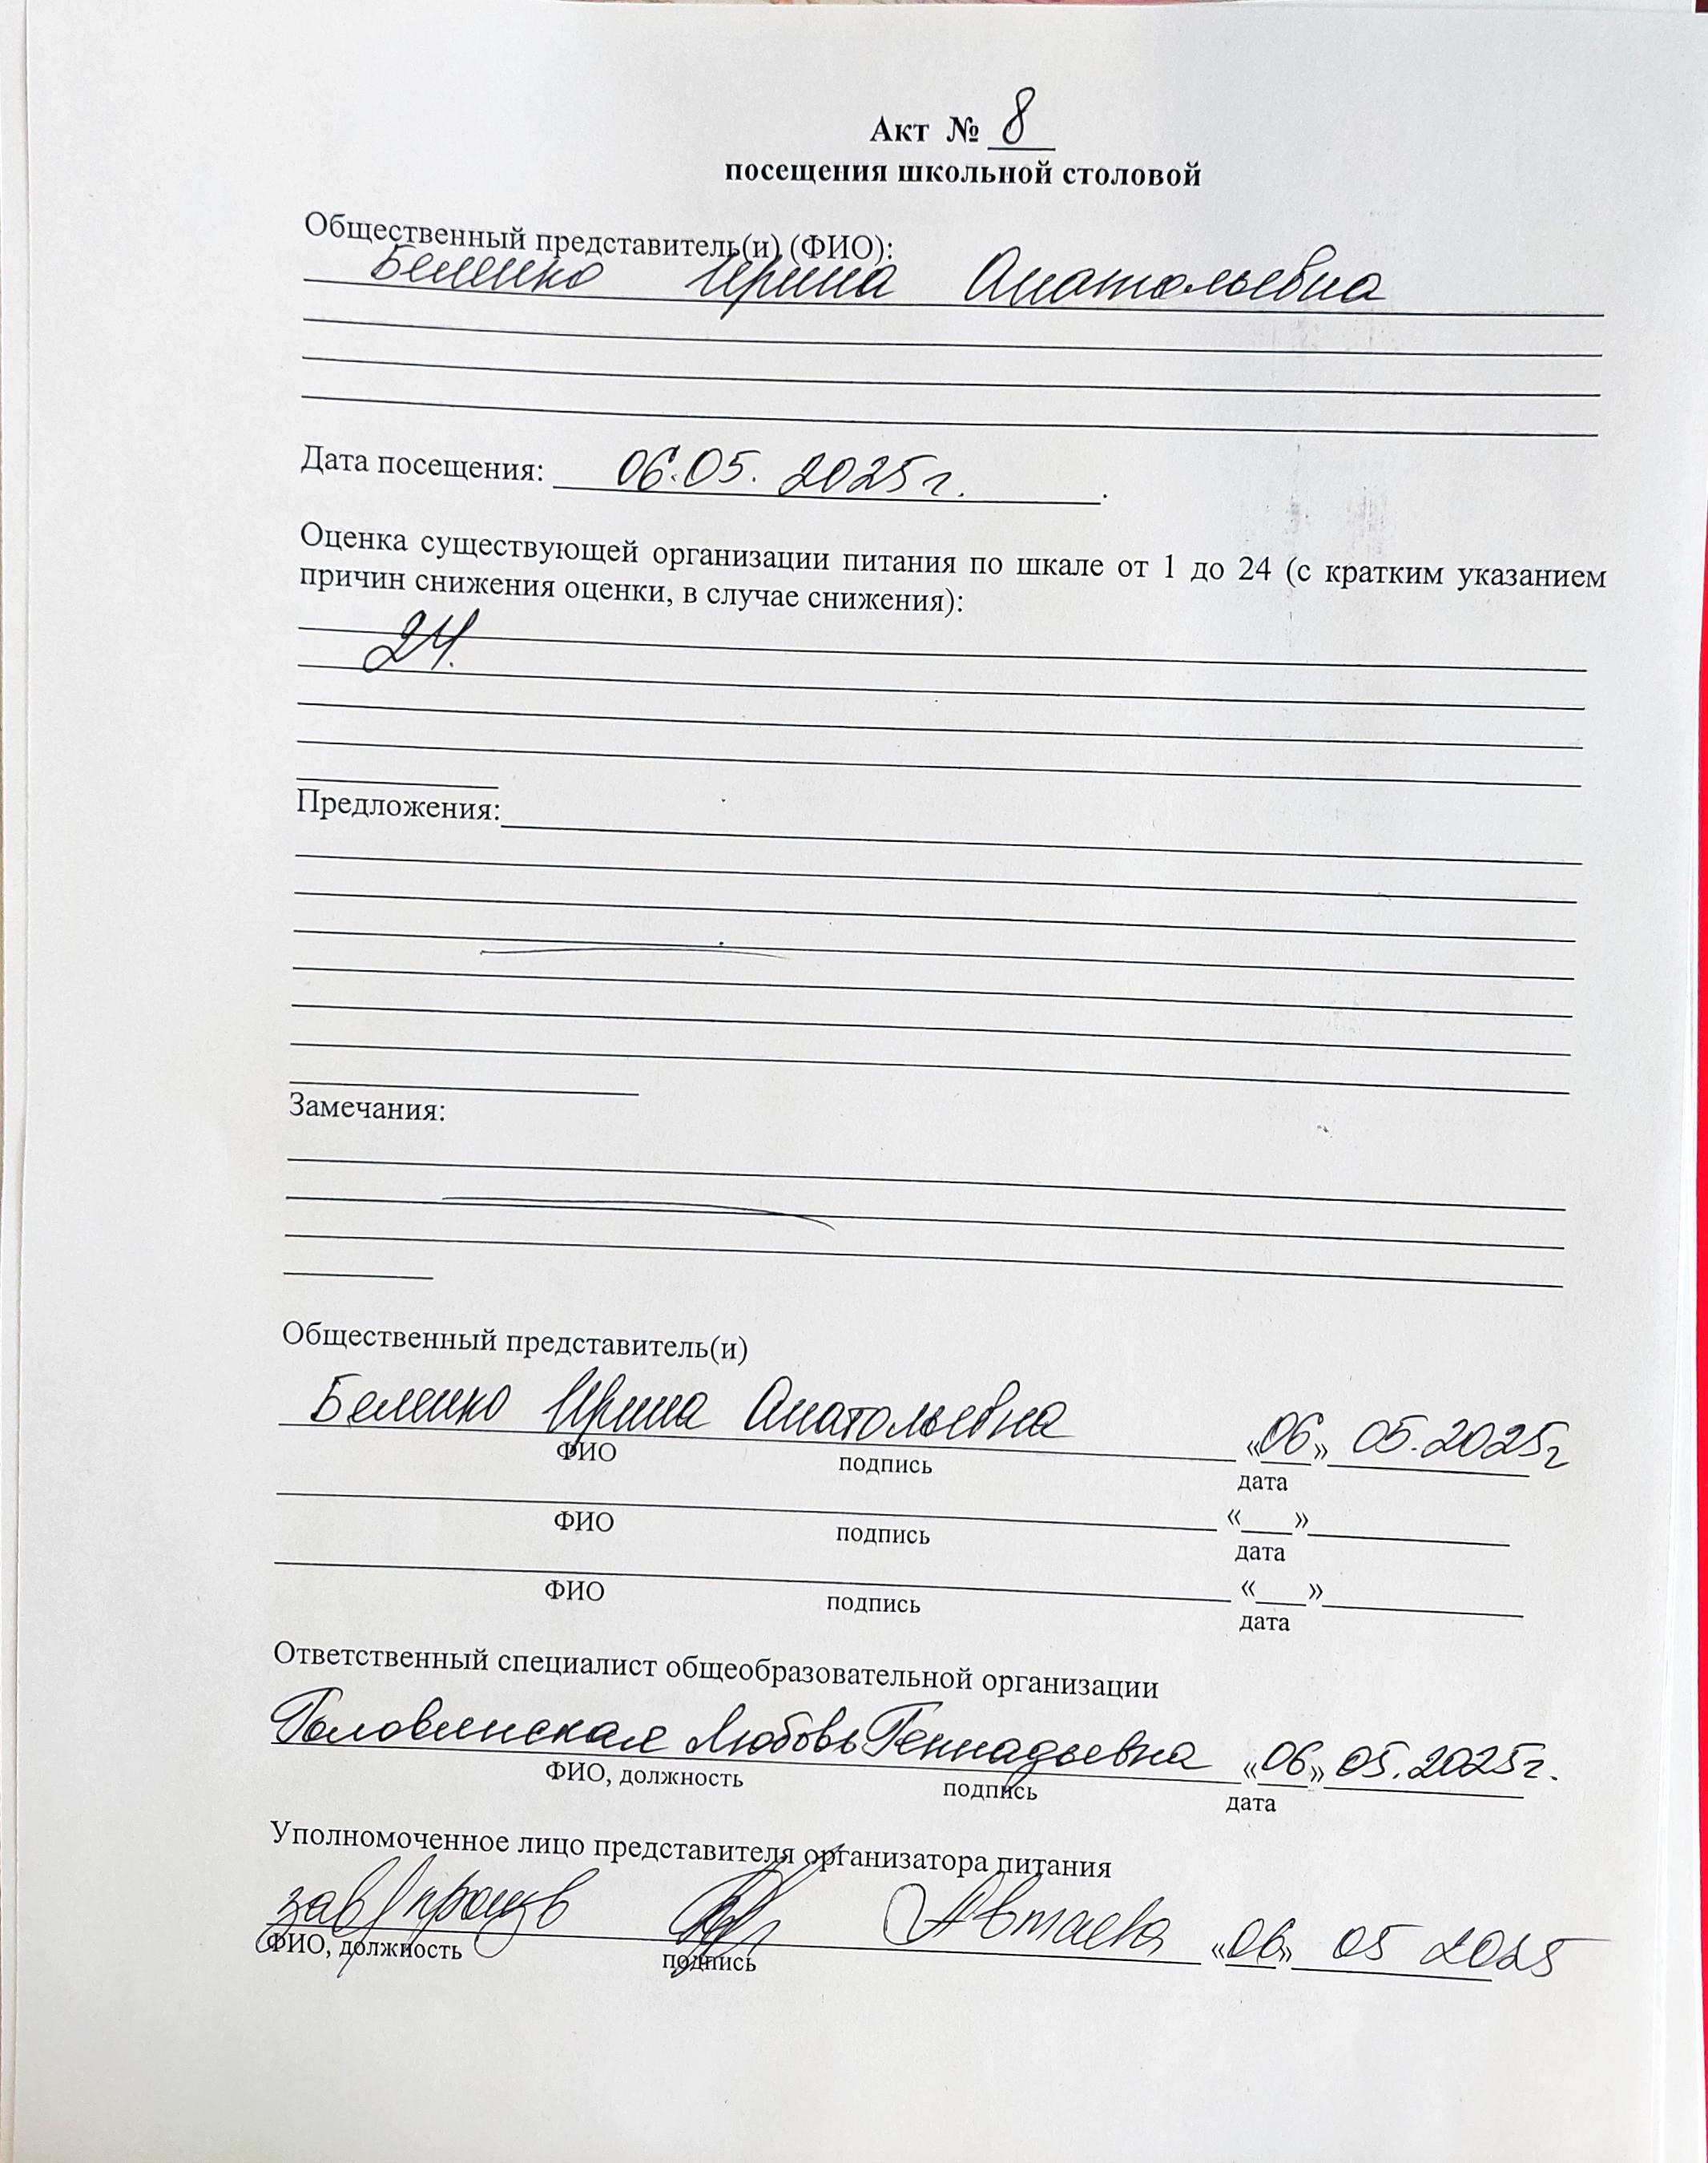 Акт № 8
посещения школьной столовой
Общественный представитель(и) (ФИО):
Беленко Ирина Анатольевна
Дата посещения: 06.05.2025г.
Оценка существующей организации питания по шкале от 1 до 24 (с кратким указанием
причин снижения оценки, в случае снижения):
24.
Предложения:
Замечания:
Общественный представитель(и)
Беленко Ирина Анатольевна «06» 05.2025г
ФИО подпись дата
« »
ФИО подпись дата
« »
ФИО подпись дата
Ответственный специалист общеобразовательной организации
Головинская Любовь Геннадьевна «06» 05.2025г.
ФИО, должность подпись дата
Уполномоченное лицо представителя организатора питания
зав/произв Автаева «06» 05 2025
ФИО, должность подпись